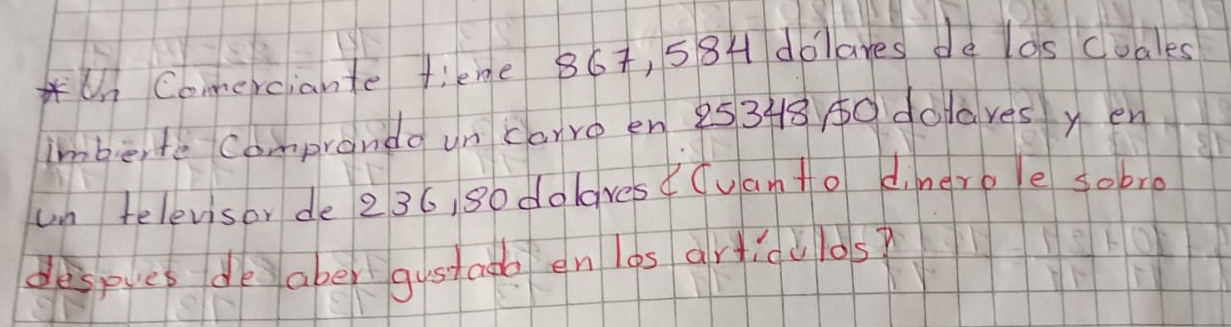 * Un Comerciante tiene 867,584 dólares de los cuales
imbierte Comprando un carro en 25348,50 dolares y en
un televisor de 236,80 dolares ¿Cuanto dinero le sobro
despues de aber gustado en los artículos?